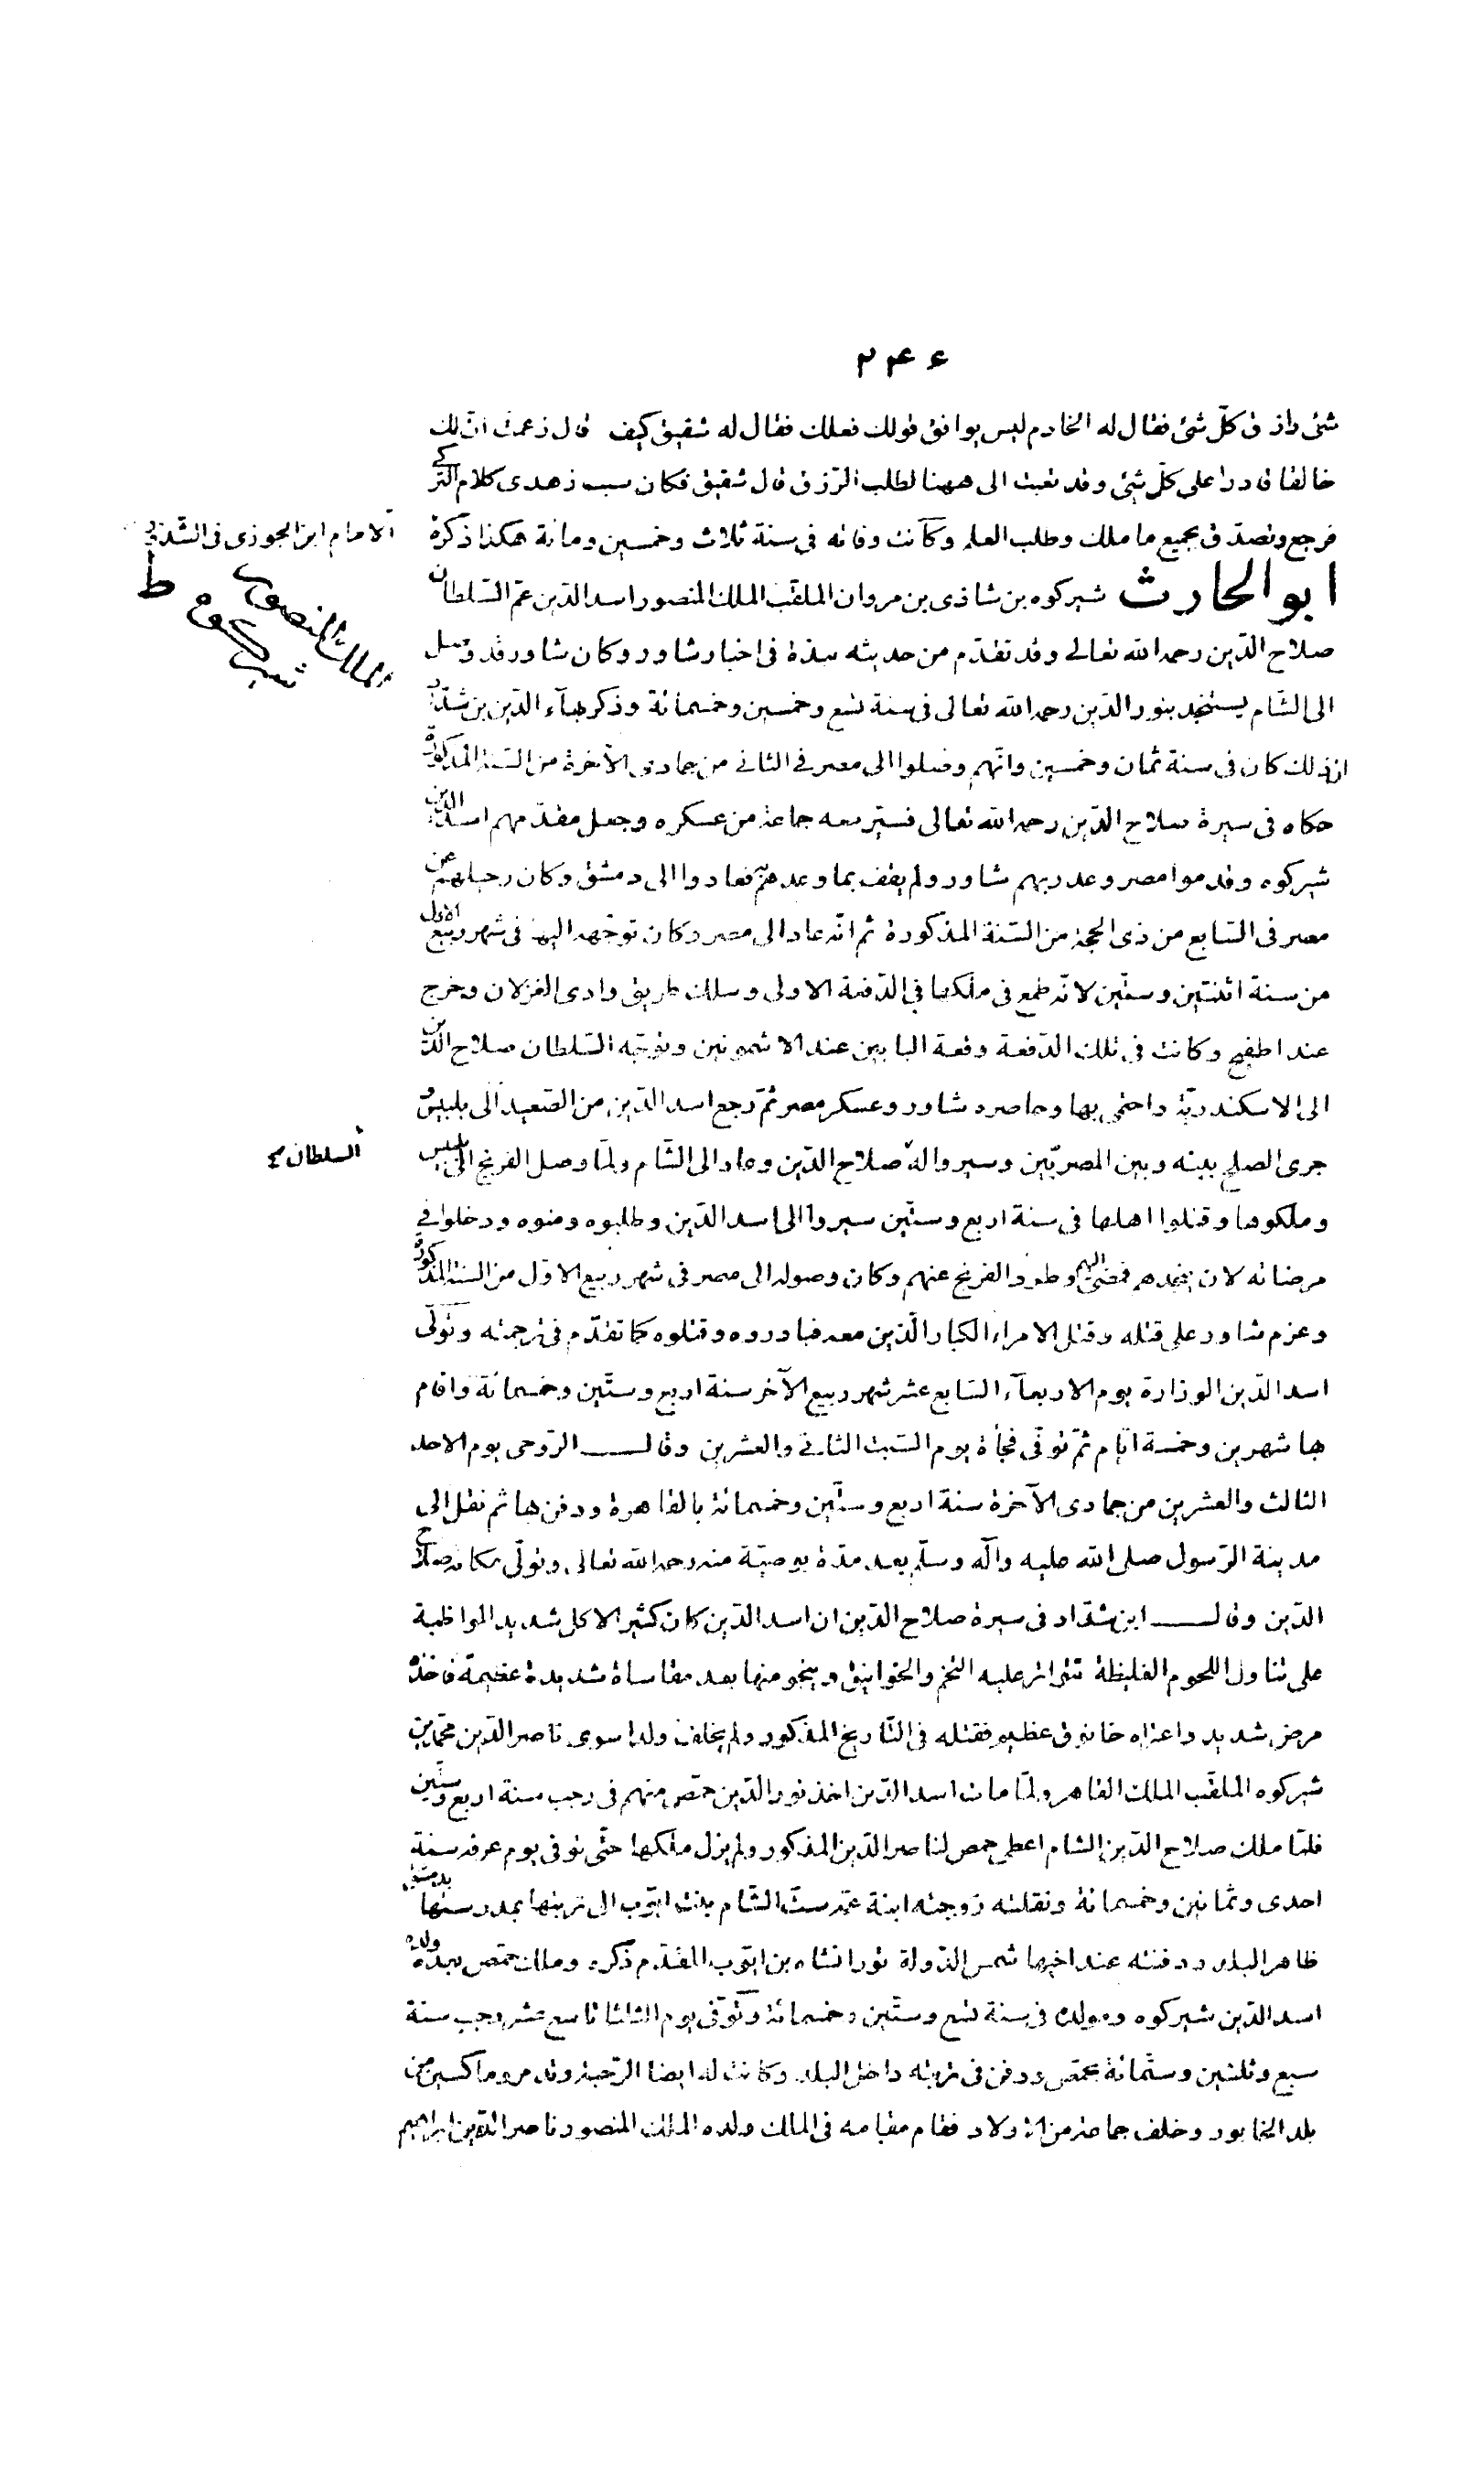 ٢٤٦
شئ رازق كلّ شئ فقال له الخادم ليس يوافق قولك فعلك فقال له شقيق كيف قال زعمت انّ لك
خالقا قادرا على كلّ شئ وقد تعبت الى ههنا لطلب الرّزق قال شقيق فكان سبب زهدى كلام التركے
فرجع وتصدّق بجميع ما ملك وطلب العلم وكانت وفاته فى سنة ثلاث وخمسين ومائة هكذا ذكرهٔ
الامام ابن الجوزى فى
ابو الحارث شيركوه بن شاذى بن مروان الملقّب الملك المنصور اسد الدّين عمّ السّلطان
الملك المنصور شيركوه ط
صلاح الدّين رحمه الله تعالے وقد تقدّم من حديثه نبذة فى اخبار شاور وكان شاور قد وصل
الى الشّام يستنجد بنور الدّين رحمه الله تعالى فى سنة تسع وخمسين وخمسمائة وذكر بهآء الدّين بن شدّاد
انّ ذلك كان فى سنة ثمان وخمسين وانّهم وصلوا الى مصر فے الثانے من جمادى الآخرة من السّنة المذكورة
حكاه فى سيرة صلاح الدّين رحمه الله تعالى فسيّر معه جماعة من عسكره وجعل مقدّمهم اسد الدين
شيركوه وقدموا مصر وغدر بهم شاور ولم يفف بما وعدهم فعادوا الى دمشق وكان رحيلهم عن
مصر فى السّابع من ذى الحجة من السّنة المذكورة ثم انّه عاد الى مصر وكان توجّهه اليها فى شهر ربيع الاول
من سنة اثنتين وستّين لانّه طمع فى ملكها فى الدّفعة الاولى وسلك طريق وادى الغزلان وخرج
عند اطفيح وكانت فى تلك الدّفعة وقعة البابين عند الاشمونين وتوجّه السّلطان صلاح الدّين
الى الاسكندريّة واحتمى بها وحاصره شاور وعسكر مصر ثمّ رجع اسد الدّين من الصّعيد الى بلبيس و
جرى الصلح بينه وبين المصريّين وسيروا له صلاح الدّين وعاد الى الشّام ولمّا وصل الفرنج الى بلبيس
السلطان
وملكوها وقتلوا اهلها فى سنة اربع وستّين سيروا الى اسد الدّين وطلبوه ومنوه ودخلوا فے
مرضاته لان ينجدهم فمضى اليهم وطرد الفرنج عنهم وكان وصوله الى مصر فى شهر ربيع الاوّل من السّنة المذكورة
وعزم شاور على قتله وقتل الامراء الكبار الّذين معه فبادروه وقتلوه كما تقدّم فى ترجمته وتولّى
اسد الدّين الوزارة يوم الاربعآء السّابع عشر شهر ربيع الآخر سنة اربع وستّين وخمسمائة واقام
بها شهرين وخمسة ايّام ثمّ توفّى فجأة يوم السّبت الثانے والعشرين وقال الرّوحى يوم الاحد
الثالث والعشرين من جمادى الآخرة سنة اربع وستّين وخمسمائة بالقاهرة ودفن بها ثم نقل الى
مدينة الرّسول صلى الله عليه وآله وسلّم بعد مدّة بوصيّة منه رحمه الله تعالى وتولّى مكانه صلاح
الدّين وقال ابن شدّاد فى سيرة صلاح الدّين ان اسد الدّين كان كثير الاكل شديد المواظبة
على تناول اللحوم الغليظة تتواتر عليه التخم والخوانيق وينجو منها بعد مقاساة شديدة عظيمة فاخذه
مرض شديد واعتراه خانوق عظيم فقتله فى التّاريخ المذكور ولم يخلف ولدا سوى ناصر الدّين محمّد بن
شيركوه الملقّب الملك القاهر ولمّا مات اسد الدّين اخذ نور الدّين حمص منهم فى رجب سنة اربع وستّين
فلمّا ملك صلاح الدّين الشام اعطى حمص لناصر الدّين المذكور ولم يزل ملكها حتّى توفى يوم عرفة سنة
احدى وثمانين وخمسمائة ونقلته زوجته ابنة عمّه ستّ الشّام بنت ايّوب الى تربتها بمدرستها بدمشق
ظاهر البلد ودفنته عند اخيها شمس الدّولة تورانشاه بن ايّوب المقدّم ذكره وملك حمص بعده ولده
اسد الدّين شيركوه ومولده فى سنة تسع وستّين وخمسمائة وتوفّى يوم الثلثا تاسع عشر رجب سنة
سبع وثلثين وستّمائة بحمص ودفن فى تربته داخل البلد وكانت له ايضا الرّحبة وتدمر وماكسين من
بلد الخابور وخلف جماعة من الاولاد فقام مقامه فى الملك ولده الملك المنصور ناصر الدّين ابراهيم